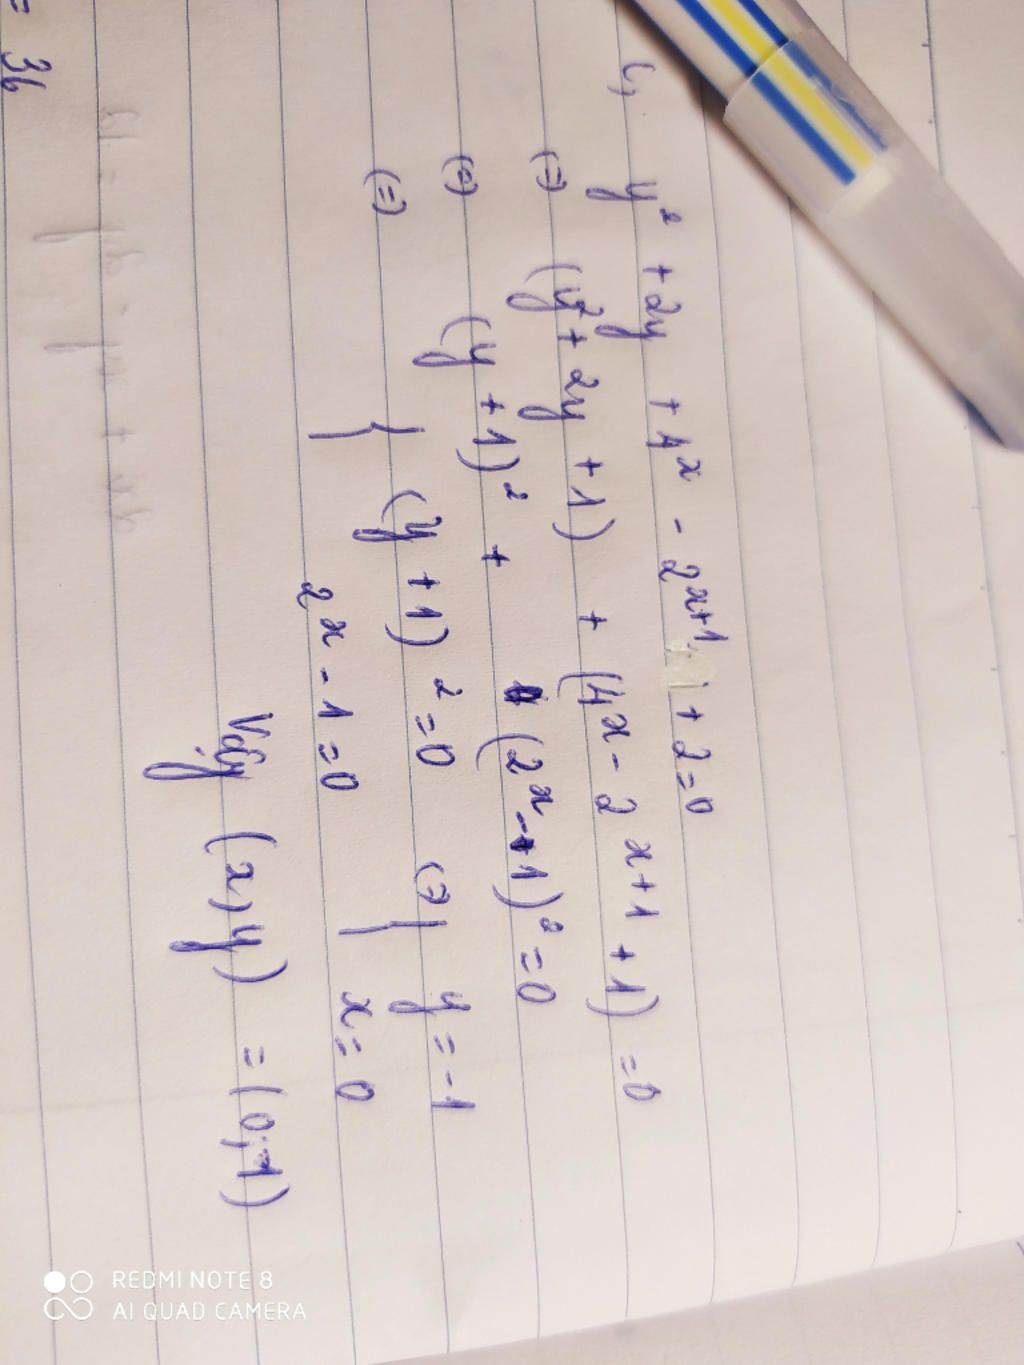 c, y² + 2y + 4ˣ - 2ˣ⁺¹ + 2 = 0
(=) (y² + 2y + 1) + (4ˣ - 2ˣ⁺¹ + 1) = 0
(=) (y + 1)² + (2ˣ - 1)² = 0
(=) { (y + 1)² = 0 (=) { y = -1
2ˣ - 1 = 0 x = 0
Vậy (x, y) = (0; -1)
= 36
REDMI NOTE 8
AI QUAD CAMERA